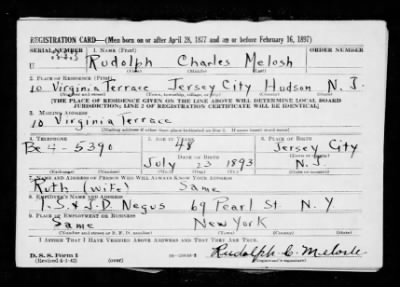 REGISTRATION CARD—(Men born on or after April 28, 1877 and on or before February 16, 1897)
SERIAL NUMBER 1. NAME (Print) ORDER NUMBER
U Rudolph Charles Melosh
(First) (Middle) (Last)
2. PLACE OF RESIDENCE (Print)
10 Virginia Terrace Jersey City Hudson N. J.
(Number and street) (Town, township, village, or city) (County) (State)
[THE PLACE OF RESIDENCE GIVEN ON THE LINE ABOVE WILL DETERMINE LOCAL BOARD
JURISDICTION; LINE 2 OF REGISTRATION CERTIFICATE WILL BE IDENTICAL]
3. MAILING ADDRESS
10 Virginia Terrace
[Mailing address if other than place indicated on line 2. If same insert word same]
4. TELEPHONE 5. AGE IN YEARS 6. PLACE OF BIRTH
Be 4-5390 48 Jersey City
DATE OF BIRTH
July 23 1893 N. J.
7. NAME AND ADDRESS OF PERSON WHO WILL ALWAYS KNOW YOUR ADDRESS
Ruth (wife) Same
8. EMPLOYER'S NAME AND ADDRESS
T. S. & J. D. Negus 69 Pearl St. N. Y
9. PLACE OF EMPLOYMENT OR BUSINESS
Same New York
(Number and street or R. F. D. number) (Town) (County) (State)
I AFFIRM THAT I HAVE VERIFIED ABOVE ANSWERS AND THAT THEY ARE TRUE.
D. S. S. Form 1
(Revised 4-1-42) (over) Rudolph C. Melosh
(Registrant's signature)